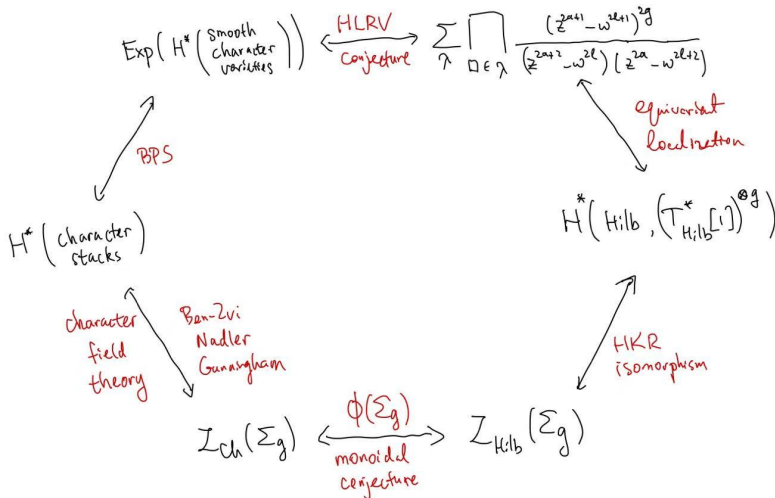 Exp(H*(smooth character varieties))
HLRV
conjecture
∑_λ ∏_{□∈λ} (z^{2a+1} - w^{2l+1})^{2g} / (z^{2a+2} - w^{2l})(z^{2a} - w^{2l+2})
BPS
equivariant
localization
H*(character stacks)
H*(Hilb, (T*_{Hilb}[1])^{⊗g})
character
field
theory
Ben-Zvi
Nadler
Gunningham
HKR
isomorphism
Z_{Ch}(Σ_g)
ϕ(Σ_g)
monoidal
conjecture
Z_{Hilb}(Σ_g)